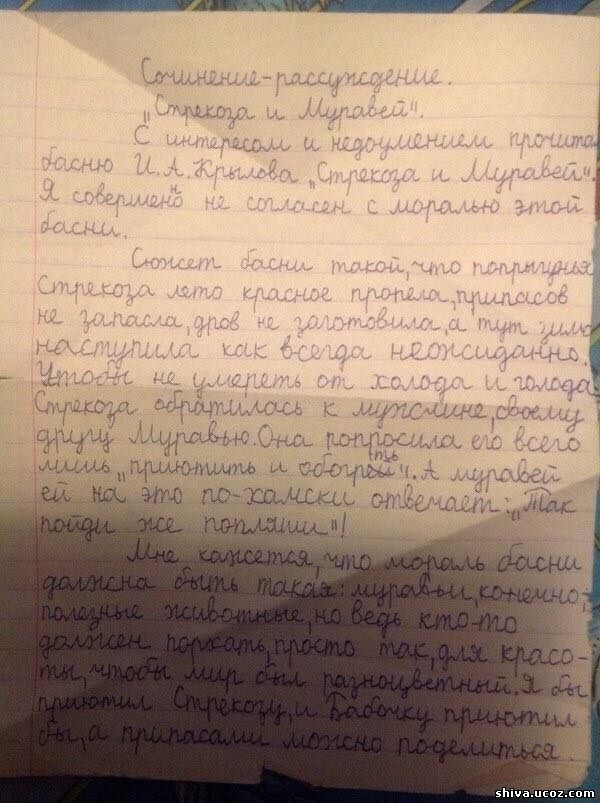 Сочинение-рассуждение.
„Стрекоза и Муравей".
С интересом и недоумением прочитал
басню И.А.Крылова „Стрекоза и Муравей".
Я совершенно не согласен с моралью этой
басни.
Сюжет басни такой, что попрыгунья
Стрекоза лето красное пропела, припасов
не запасла, дров не заготовила, а тут зима
наступила как всегда неожиданно.
Чтобы не умереть от холода и голода
Стрекоза обратилась к мужчине, своему
другу Муравью. Она попросила его всего
лишь „приютить и обогреть". А муравей
ей на это по-хамски отвечает: „Так
пойди же попляши"!
Мне кажется, что мораль басни
должна быть такая: муравьи, конечно,
полезные животные, но ведь кто-то
должен порхать, просто так, для красо-
ты, чтобы мир был разноцветный. Я бы
приютил Стрекозу, и Бабочку приютил
бы, а припасами можно поделиться.
shiva.ucoz.com